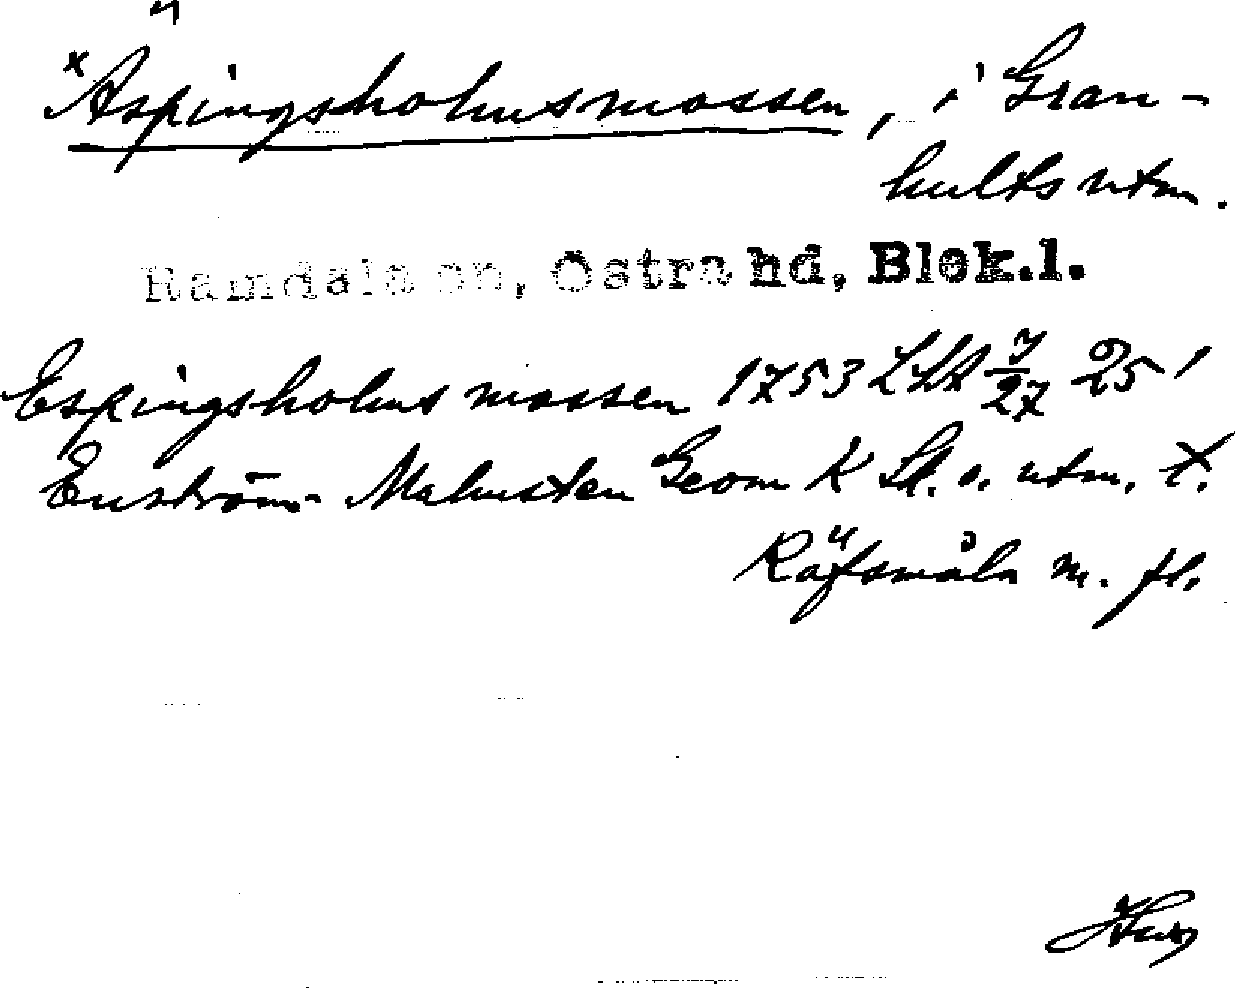 *Äspingsholmsmossen, i Gran-
hults utm.
Ramdala sn, Östra hd, Blek.l.
Espingsholms mossen 1753 LSA 7/27 25'
Enström-Malmsten Geom K Sk. o. utm. t.
Räfsmåla m. fl.